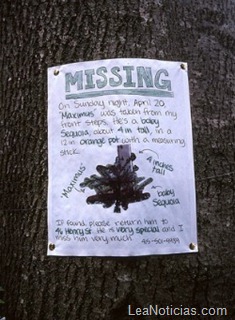 MISSING
On Sunday night, April 20,
"Maximus" was taken from my
front steps. He's a baby
Sequoia, about 4 in tall, in a
12 in orange pot with a measuring
stick.
4 inches
tall
"Maximus"
baby
Sequoia
If found please return him to
Henry St. He is very special and I
miss him very much
LeaNoticias.com